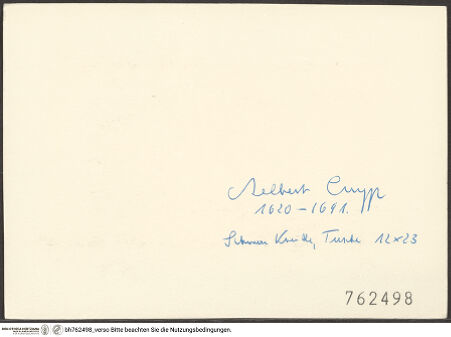 Aelbert Cuyp
1620-1691.
Schwarze Kreide, Tusche 12x23
762498
bh762498_verso Bitte beachten Sie die Nutzungsbedingungen.